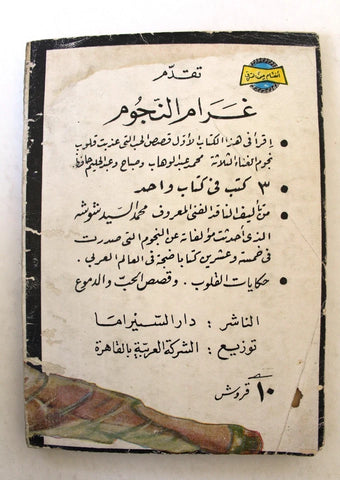 تقدم
غرام النجوم
• إقرأ فى هذا الكتاب لأول قصص الحب التى عذبت قلوب
نجوم الغناء الثلاثة محمد عبد الوهاب وصباح وعبد الحليم حافظ
• ٣ كتب فى كتاب واحد
• من تأليف الناقد الفنى المعروف محمد السيد شوشه
الذى أحدثت مؤلفاته عن النجوم التى صدرت
فى خمسة وعشرين كتابا ضجة فى العالم العربى.
• حكايات القلوب. وقصص الحب والدموع
الناشر: دار السينراما
توزيع: الشركة العربية بالقاهرة
١٠ قروش